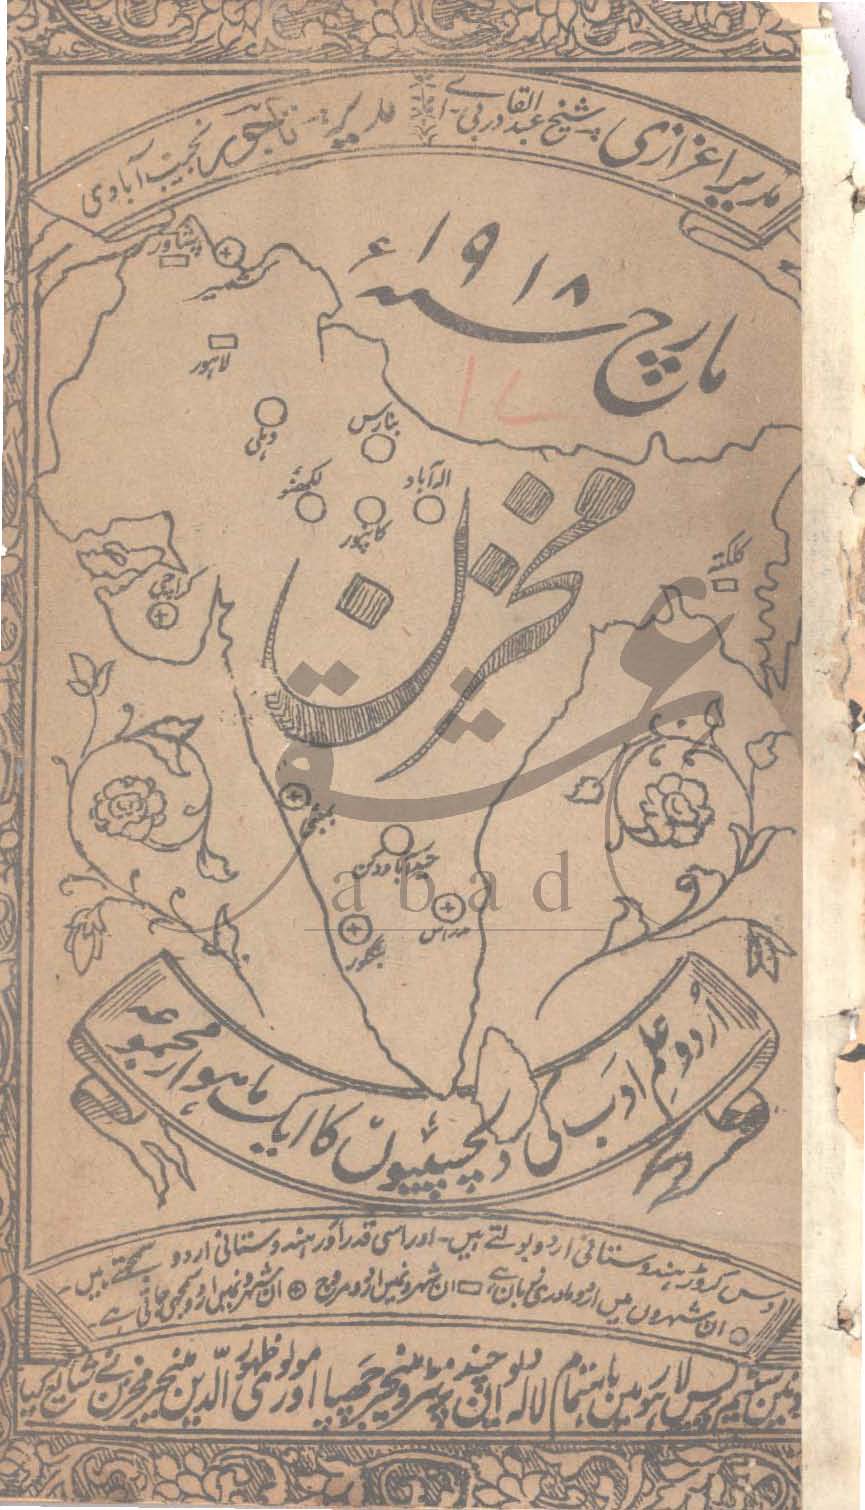 مدیر اعزازی
شیخ عبدالقادر بی۔ اے
مدیر:۔ تاجور نجیب آبادی
مارچ ۱۹۱۸ء
۱۷
پشاور
کشمیر
لاہور
دہلی
بنارس
لکھنؤ
کانپور
الہ آباد
کلکتہ
کراچی
مخزن
عشق
abad
بمبئی
حیدرآباد دکن
مدراس
بنگلور
اُردو علم ادَب کی دلچسپیوں کا ایک ماہوار مجموعہ
دس کروڑ ہندوستانی اردو بولتے ہیں۔ اور اسی قدر اور ہندوستانی اردو سمجھتے ہیں۔
○ ان شہروں میں اردو مادری زبان ہے □ ان شہرونمیں اردو مروج ⊕ ان شہرونمیں اردو سمجھی جاتی ہے۔
سٹیم پریس لاہور میں باہتمام لالہ دیوان چند پرنٹر و منیجر چھپا اور مولوی ظہور الدین منیجر مخزن نے شایع کیا